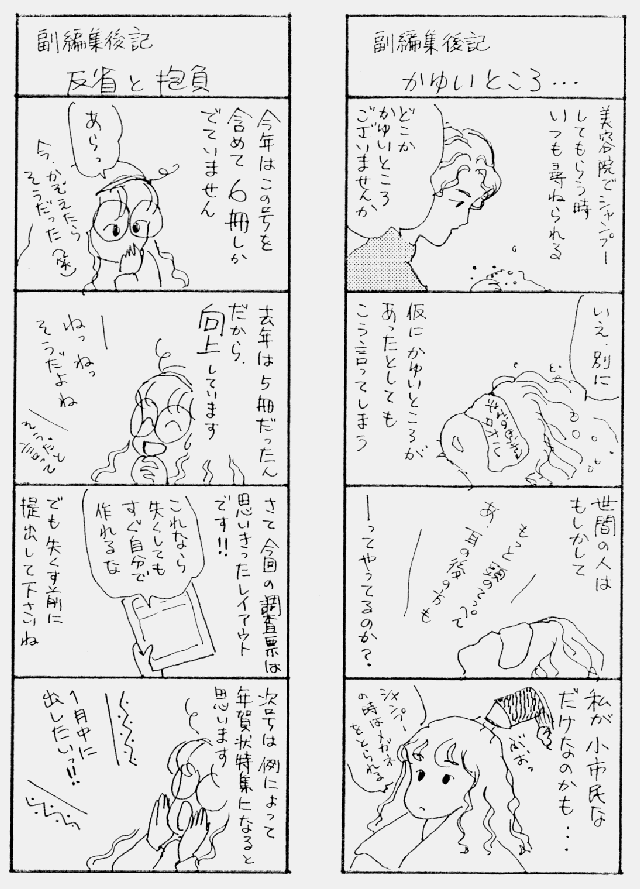 副編集後記
かゆいところ…
美容院でシャンプー
してもらう時
いつも尋ねられる
どこか
かゆいところ
ございませんか
いえ、別に
仮にかゆいところが
あったとしても
こう言ってしまう
世間の人は
もしかして
もっと頭のてっぺんて
あ、耳の後の方も
ーってやってるのか?
私が小市民な
だけなのかも・・・
ぶおっ
シャンプー
の時はメガネ
をとられる
副編集後記
反省と抱負
今年はこの号を
含めて6冊しか
でていません
あらっ
今、かぞえたら
そうだった(笑)
去年は5冊だったん
だから、
向上しています
ねっねっ
そうだよね
そうだと
言って
さて今回の調査票は
思いきったレイアウト
です!!
これなら
失くしても
すぐ自分で
作れるな
でも失くす前に
提出して下さいね
次号は例によって
年賀状特集になると
思います
1月中に
出したいっ!!